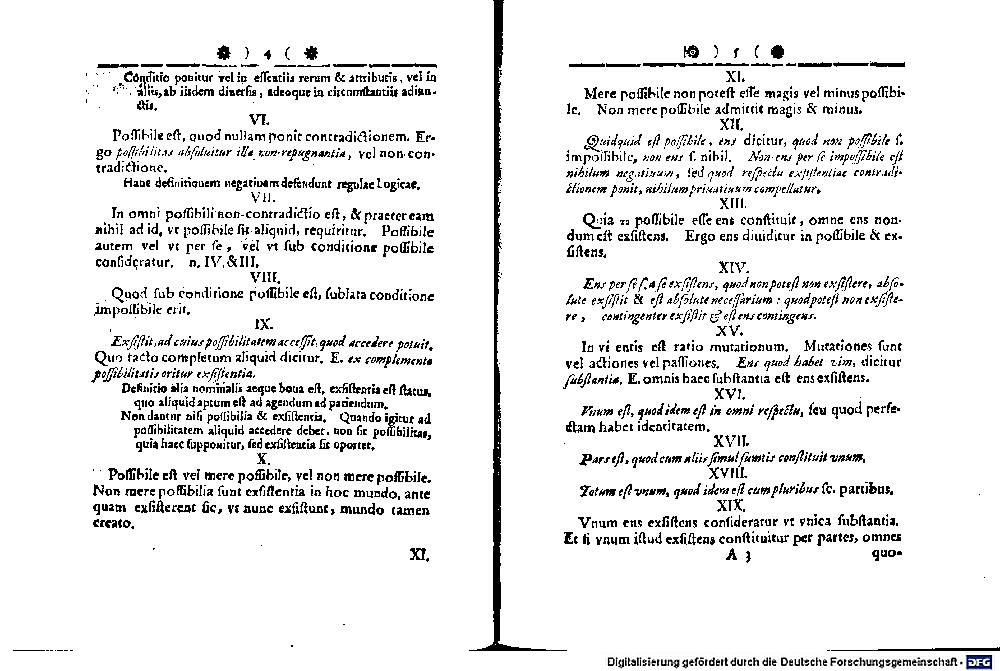 ) 4 (
Conditio ponitur vel in essentiis rerum & attributis, vel in
aliis, ab iisdem diuersis, adeoque in circumstantiis adiun-
ctis.
VI.
Possibile est, quod nullam ponit contradictionem. Er-
go possibilitas absoluitur illa non-repugnantia, vel non-con-
tradictione.
Hanc definitionem negatiuam defendunt regulae Logicae.
VII.
In omni possibili non-contradictio est, & praeter eam
nihil ad id, vt possibile sit aliquid, requiritur. Possibile
autem vel vt per se, vel vt sub conditione possibile
consideratur. n. IV. & III.
VIII.
Quod sub conditione possibile est, sublata conditione
impossibile erit.
IX.
Exsistit, ad cuius possibilitatem accessit, quod accedere potuit.
Quo facto completum aliquid dicitur. E. ex complemento
possibilitatis oritur exsistentia.
Definitio alia nominalis aeque bona est, exsistentia est status,
quo aliquid aptum est ad agendum ad patiendum.
Non dantur nisi possibilia & exsistentia. Quando igitur ad
possibilitatem aliquid accedere debet, non sit possibilitas,
quia haec supponitur, sed exsistentia sit oportet.
X.
Possibile est vel mere possibile, vel non mere possibile.
Non mere possibilia sunt exsistentia in hoc mundo, ante
quam exsisterent sic, vt nunc exsistunt, mundo tamen
creato.
XI.
) 5 (
XI.
Mere possibile non potest esse magis vel minus possibi-
le. Non mere possibile admittit magis & minus.
XII.
Quidquid est possibile, ens dicitur, quod non possibile s.
impossibile, non ens s. nihil. Non ens per se impossibile est
nihilum negatiuum, sed quod respectu exsistentiae contradi-
ctionem ponit, nihilum priuatiuum compellatur.
XIII.
Quia το possibile esse ens constituit, omne ens non-
dum est exsistens. Ergo ens diuiditur in possibile & ex-
sistens.
XIV.
Ens per se s. a se exsistens, quod non potest non exsistere, abso-
lute exsistit & est absolute necessarium: quod potest non exsiste-
re, contingenter exsistit & est ens contingens.
XV.
In vi entis est ratio mutationum. Mutationes sunt
vel actiones vel passiones. Ens quod habet vim, dicitur
substantia. E. omnis haec substantia est ens exsistens.
XVI.
Vnum est, quod idem est in omni respectu, seu quod perfe-
ctam habet identitatem.
XVII.
Pars est, quod cum aliis simul sumtis constituit vnum.
XVIII.
Totum est vnum, quod idem est cum pluribus sc. partibus.
XIX.
Vnum ens exsistens consideratur vt vnica substantia.
Et si vnum istud exsistens constituitur per partes, omnes
A 3 quo-
Digitalisierung gefördert durch die Deutsche Forschungsgemeinschaft - DFG